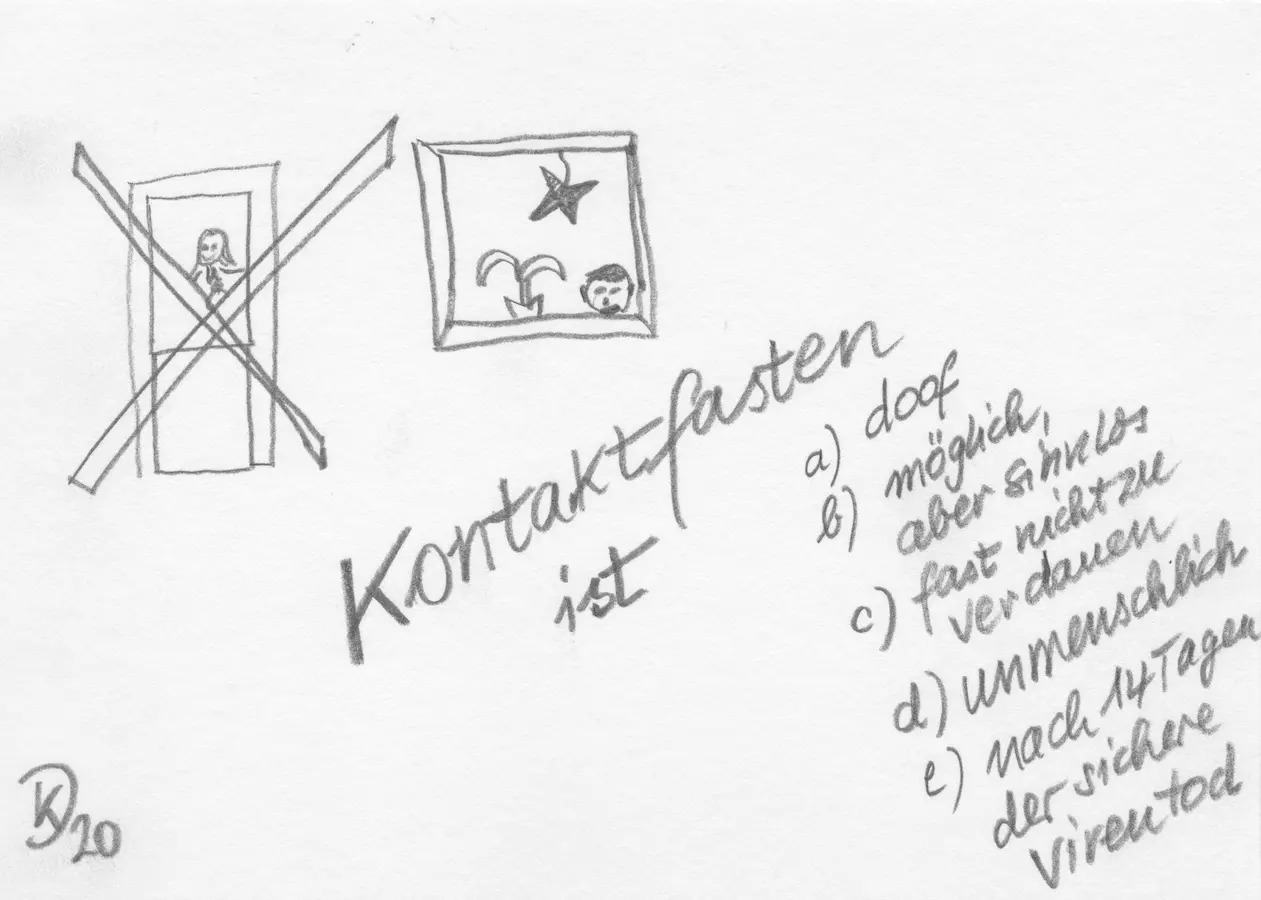 Kontaktfasten
ist
a) doof
b) möglich,
aber sinnlos
c) fast nicht zu
verdauen
d) unmenschlich
e) nach 14 Tagen
der sichere
Virentod
DK 20